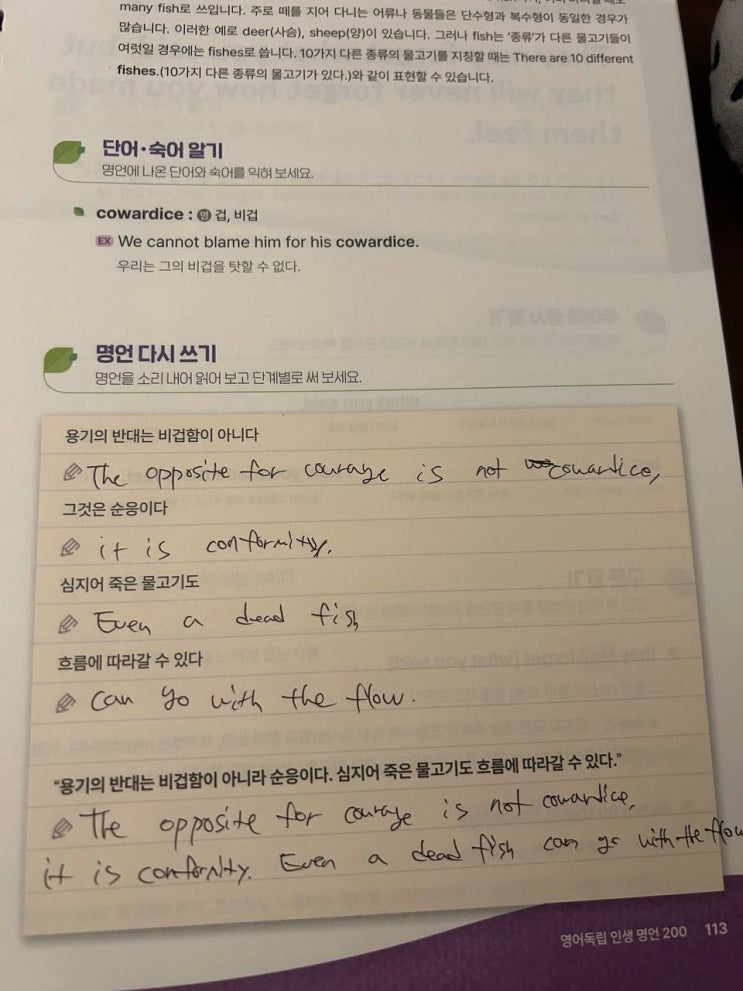 many fish로 쓰입니다. 주로 떼를 지어 다니는 어류나 동물들은 단수형과 복수형이 동일한 경우가
많습니다. 이러한 예로 deer(사슴), sheep(양)이 있습니다. 그러나 fish는 '종류'가 다른 물고기들이
여럿일 경우에는 fishes로 씁니다. 10가지 다른 종류의 물고기를 지칭할 때는 There are 10 different
fishes.(10가지 다른 종류의 물고기가 있다.)와 같이 표현할 수 있습니다.
단어·숙어 알기
명언에 나온 단어와 숙어를 익혀 보세요.
cowardice : 명 겁, 비겁
EX We cannot blame him for his cowardice.
우리는 그의 비겁을 탓할 수 없다.
명언 다시 쓰기
명언을 소리 내어 읽어 보고 단계별로 써 보세요.
용기의 반대는 비겁함이 아니다
The opposite for courage is not cowardice,
그것은 순응이다
it is conformity.
심지어 죽은 물고기도
Even a dead fish
흐름에 따라갈 수 있다
can go with the flow.
"용기의 반대는 비겁함이 아니라 순응이다. 심지어 죽은 물고기도 흐름에 따라갈 수 있다."
The opposite for courage is not cowardice,
it is conformity. Even a dead fish can go with the flow
영어독립 인생 명언 200 113